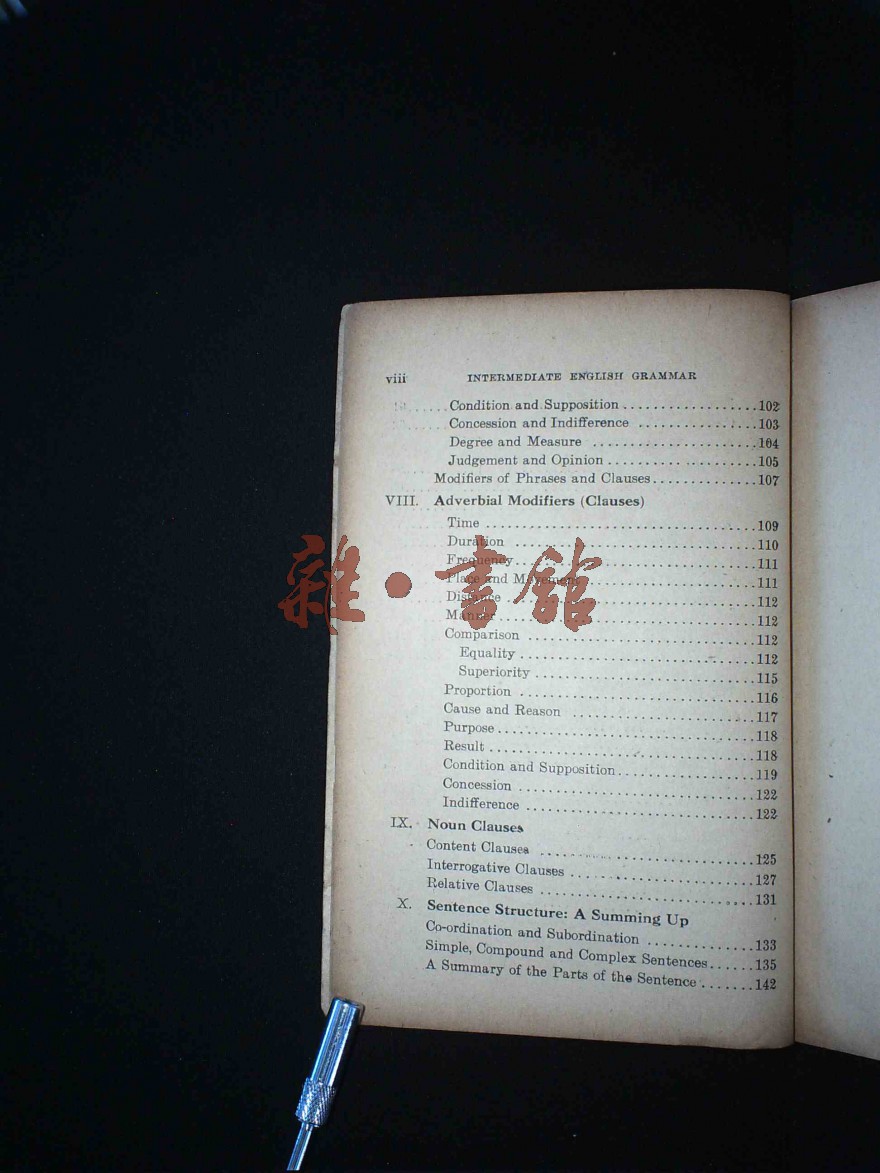 viii INTERMEDIATE ENGLISH GRAMMAR
Condition and Supposition..................102
Concession and Indifference ................103
Degree and Measure ......................104
Judgement and Opinion....................105
Modifiers of Phrases and Clauses..............107
VIII. Adverbial Modifiers (Clauses)
Time ....................................109
Duration ................................110
Frequency................................111
Place and Movement......................111
Distance .................................112
Manner..................................112
Comparison ..............................112
Equality................................112
Superiority..............................115
Proportion ...............................116
Cause and Reason ........................117
Purpose..................................118
Result...................................118
Condition and Supposition..................119
Concession ...............................122
Indifference ..............................122
IX. Noun Clauses
Content Clauses ............................125
Interrogative Clauses ........................127
Relative Clauses ............................131
X. Sentence Structure: A Summing Up
Co-ordination and Subordination ..............133
Simple, Compound and Complex Sentences......135
A Summary of the Parts of the Sentence.......142
雜·書館